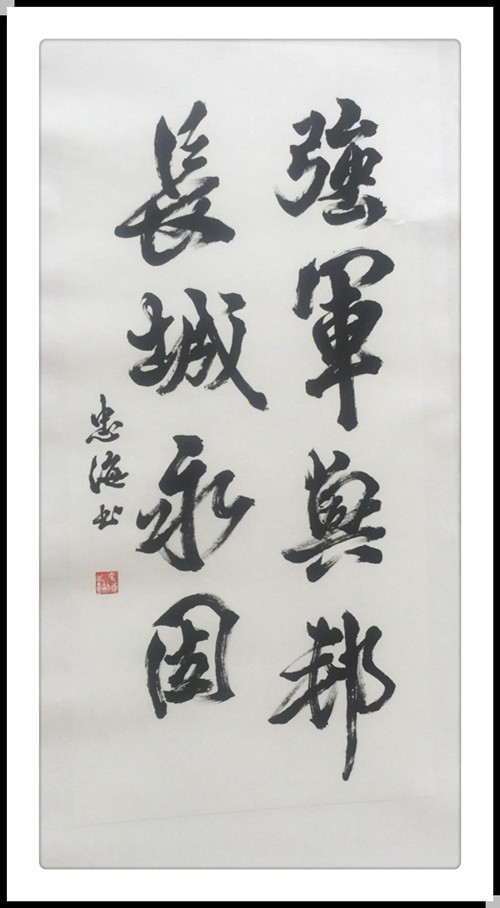 強軍興邦
長城永固
忠海书